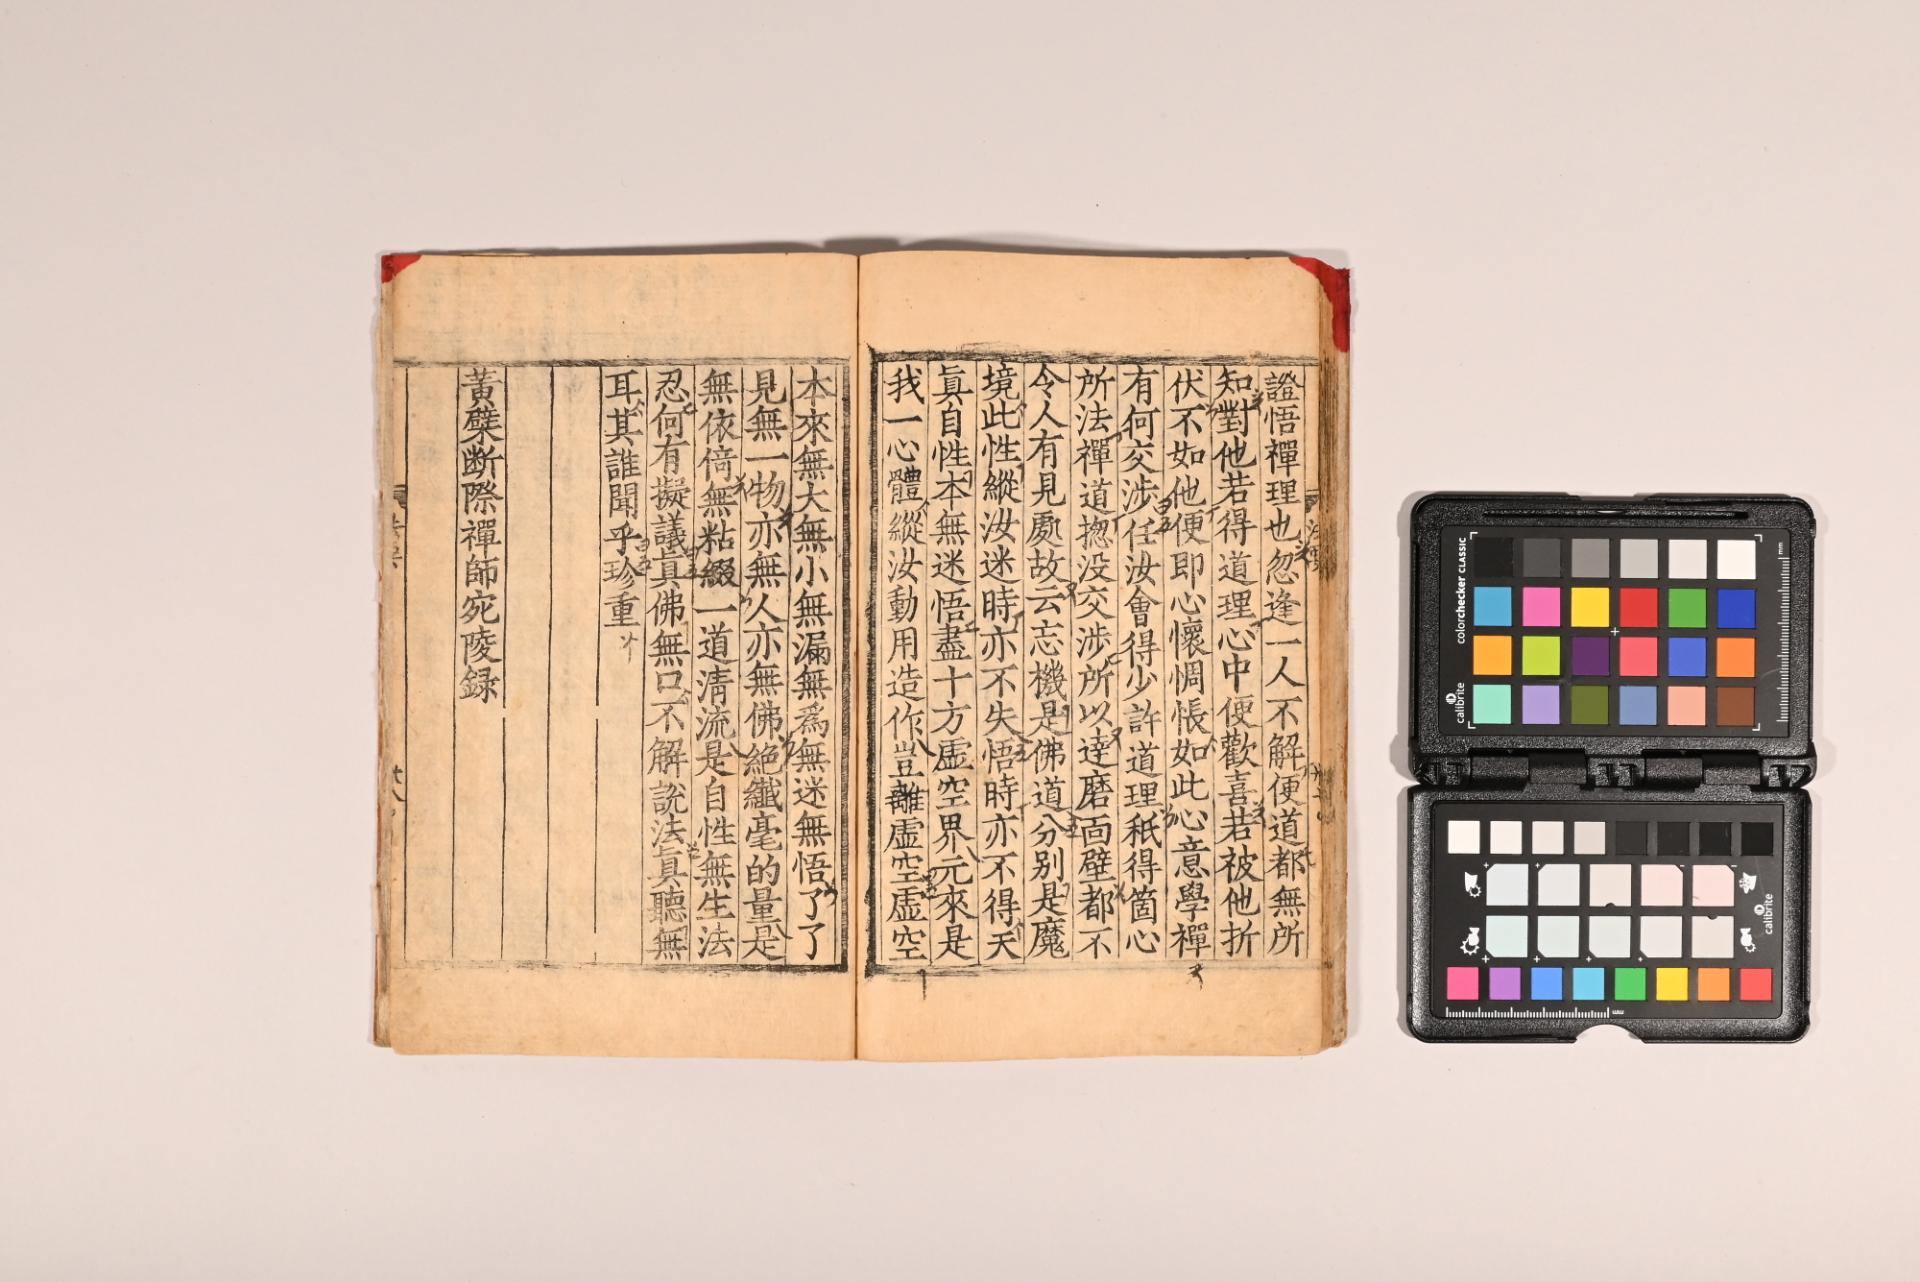 證悟禪理也忽逢一人不解便道都無所
知對他若得道理心中便歡喜若被他折
伏不如他便即心懷惆悵如此心意學禪
有何交涉任汝會得少許道理秖得箇心
所法禪道揔没交涉所以達磨面壁都不
令人有見處故云忘機是佛道分别是魔
境此性縱汝迷時亦不失悟時亦不得天
眞自性本無迷悟盡十方虛空界元來是
我一心體縱汝動用造作豈離虛空虛空
本來無大無小無漏無爲無迷無悟了了
見無一物亦無人亦無佛絶纖毫的量是
無依倚無粘綴一道淸流是自性無生法
忍何有擬議真佛無口不解說法眞聽無
耳其誰聞乎珍重
黃檗断際禪師宛陵録
colorchecker CLASSIC
calibrite
mm
calibrite